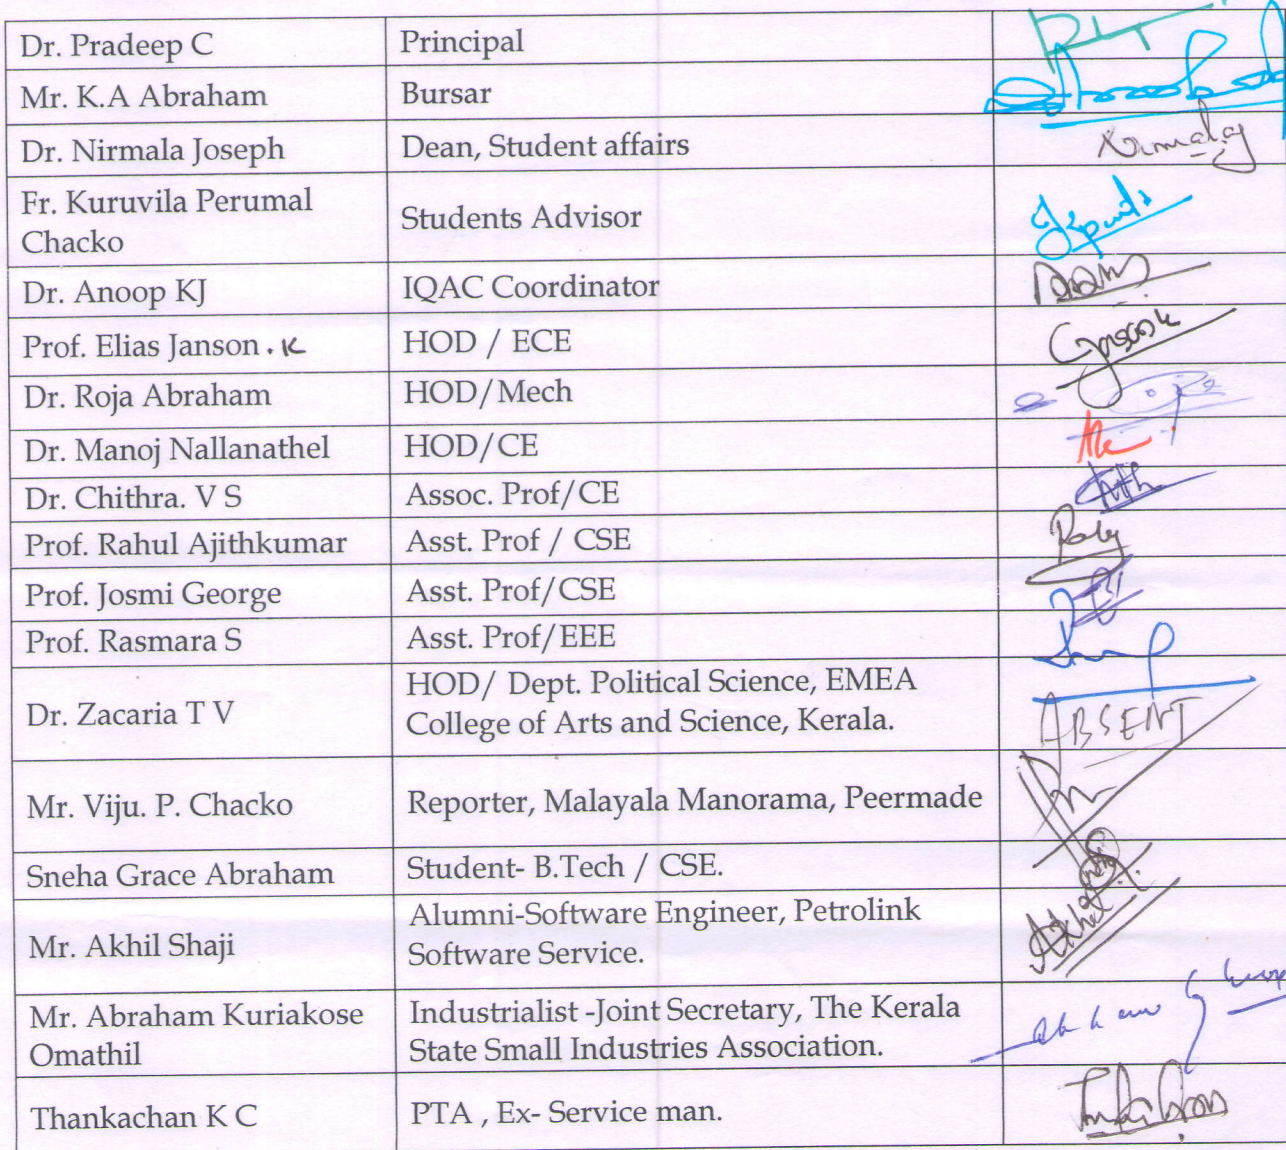 Dr. Pradeep C Principal
Mr. K.A Abraham Bursar
Dr. Nirmala Joseph Dean, Student affairs Nirmala
Fr. Kuruvila Perumal
Chacko Students Advisor
Dr. Anoop KJ IQAC Coordinator
Prof. Elias Janson . K HOD / ECE
Dr. Roja Abraham HOD/Mech
Dr. Manoj Nallanathel HOD/CE
Dr. Chithra. V S Assoc. Prof/CE
Prof. Rahul Ajithkumar Asst. Prof / CSE
Prof. Josmi George Asst. Prof/CSE
Prof. Rasmara S Asst. Prof/EEE
Dr. Zacaria T V HOD/ Dept. Political Science, EMEA
College of Arts and Science, Kerala. ABSENT
Mr. Viju. P. Chacko Reporter, Malayala Manorama, Peermade
Sneha Grace Abraham Student- B.Tech / CSE.
Mr. Akhil Shaji Alumni-Software Engineer, Petrolink
Software Service.
Mr. Abraham Kuriakose Industrialist -Joint Secretary, The Kerala
Omathil State Small Industries Association.
Thankachan K C PTA , Ex- Service man.